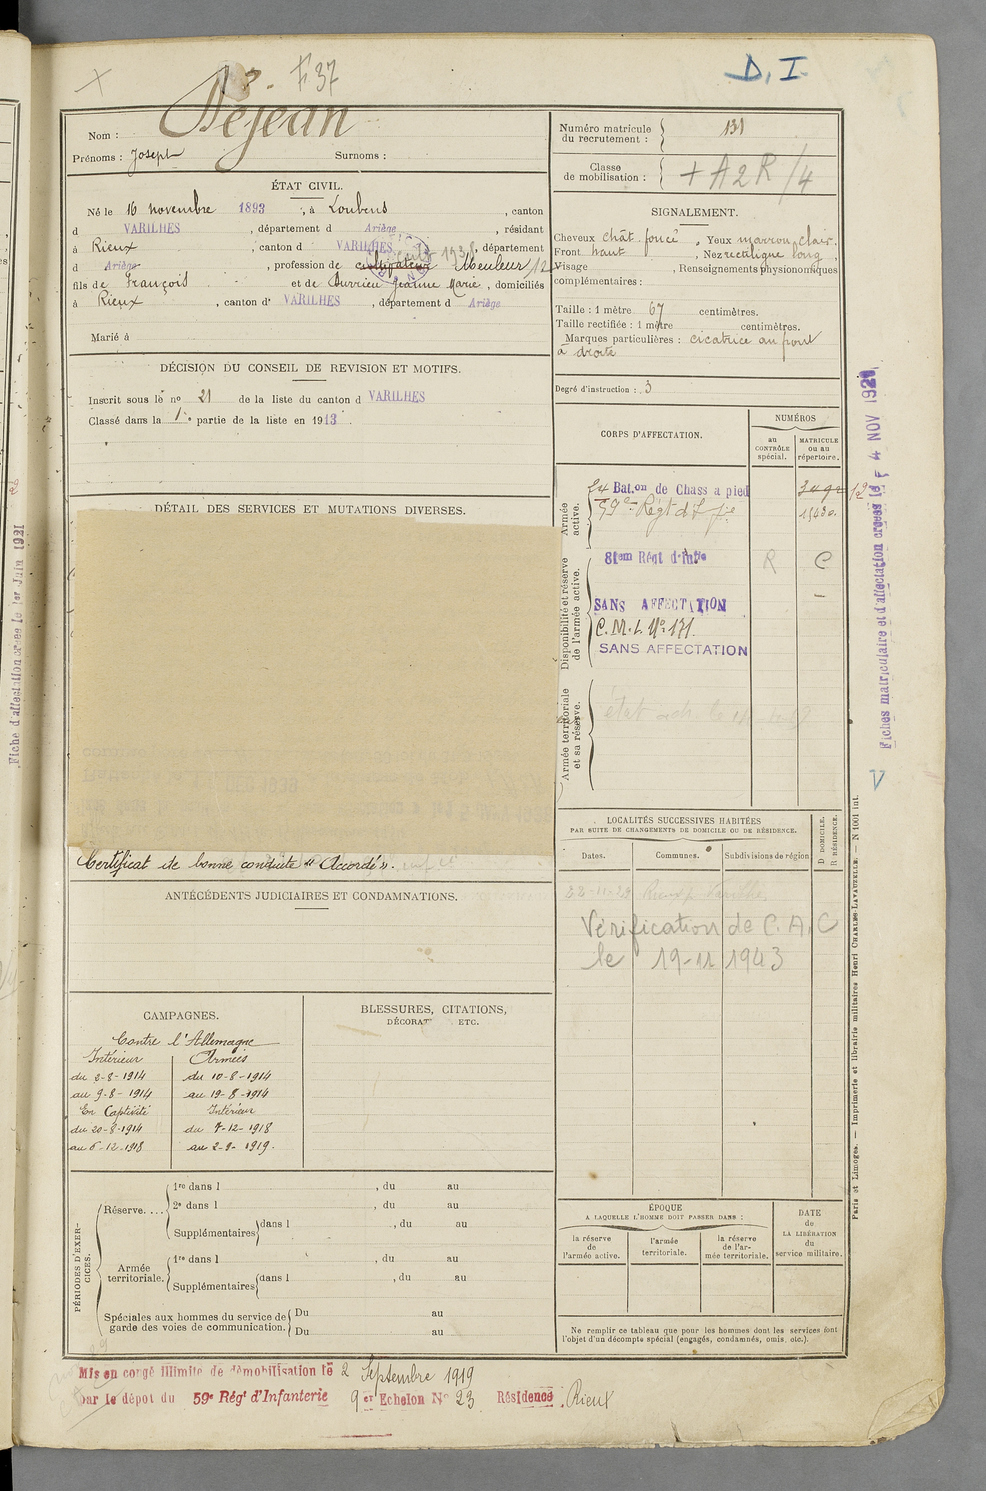 F 37
D. I.
Nom : Dejean
Prénoms : Joseph Surnoms :
ÉTAT CIVIL.
Né le 16 novembre 1893, à Loubens, canton
d VARILHES, département d Ariège, résidant
à Rieux, canton d VARILHES, département
d Ariège, profession de cultivateur Meuleur
fils de François et de Durrieu Jeanne Marie, domiciliés
à Rieux, canton d' VARILHES, département d Ariège
Marié à
DÉCISION DU CONSEIL DE REVISION ET MOTIFS.
Inscrit sous le n° 21 de la liste du canton d VARILHES
Classé dans la 1re partie de la liste en 1913.
DÉTAIL DES SERVICES ET MUTATIONS DIVERSES.
Certificat de bonne conduite « Accordé ».
ANTÉCÉDENTS JUDICIAIRES ET CONDAMNATIONS.
CAMPAGNES.
Contre l'Allemagne
Intérieur Armées
du 2-8-1914 du 10-8-1914
au 9-8-1914 au 19-8-1914
En Captivité Intérieur
du 20-8-1914 du 7-12-1918
au 6-12-1918 au 2-9-1919.
BLESSURES, CITATIONS,
DÉCORAT ETC.
PÉRIODES D'EXERCICES.
Réserve....
1re dans l , du au
2e dans l , du au
Supplémentaires dans l , du au
Armée territoriale.
1re dans l , du au
Supplémentaires dans l , du au
Spéciales aux hommes du service de garde des voies de communication.
Du au
Du au
Mis en congé illimité de démobilisation le 2 Septembre 1919
par le dépôt du 59e Régt d'Infanterie 9er Echelon N° 23 Résidence : Rieux
Numéro matricule du recrutement : 131
Classe de mobilisation : + A 2 R /4
SIGNALEMENT.
Cheveux chât. foncé, Yeux marron clair,
Front haut, Nez rectiligne long,
Visage , Renseignements physionomiques
complémentaires :
Taille : 1 mètre 67 centimètres.
Taille rectifiée : 1 mètre centimètres.
Marques particulières : cicatrice au front
à droite
Degré d'instruction : 3
CORPS D'AFFECTATION.
NUMÉROS
au CONTRÔLE spécial.
MATRICULE ou au répertoire.
Armée active.
Bat.on de Chass a pied
59e Régt d'Inf.ie
Disponibilité et réserve de l'armée active.
81em Régt d'Inf.ie R C
SANS AFFECTATION
C.M.I. N° 171.
SANS AFFECTATION
Armée territoriale et sa réserve.
LOCALITÉS SUCCESSIVES HABITÉES
PAR SUITE DE CHANGEMENTS DE DOMICILE OU DE RÉSIDENCE.
Dates. Communes. Subdivisions de région
D DOMICILE.
R RÉSIDENCE.
Vérification de C.A.C
le 19-11 1943
ÉPOQUE
A LAQUELLE L'HOMME DOIT PASSER DANS :
la réserve de l'armée active.
l'armée territoriale.
la réserve de l'armée territoriale.
DATE de LA LIBÉRATION du service militaire.
Ne remplir ce tableau que pour les hommes dont les services font
l'objet d'un décompte spécial (engagés, condamnés, omis, etc.).
Paris et Limoges. — Imprimerie et librairie militaires Henri CHARLES-LAVAUZELLE. — N 1001 int.
Fiches matriculaire et d'affectation créées le 4 NOV 1921
V
Fiche d'affectation créée le 1er Juin 1921